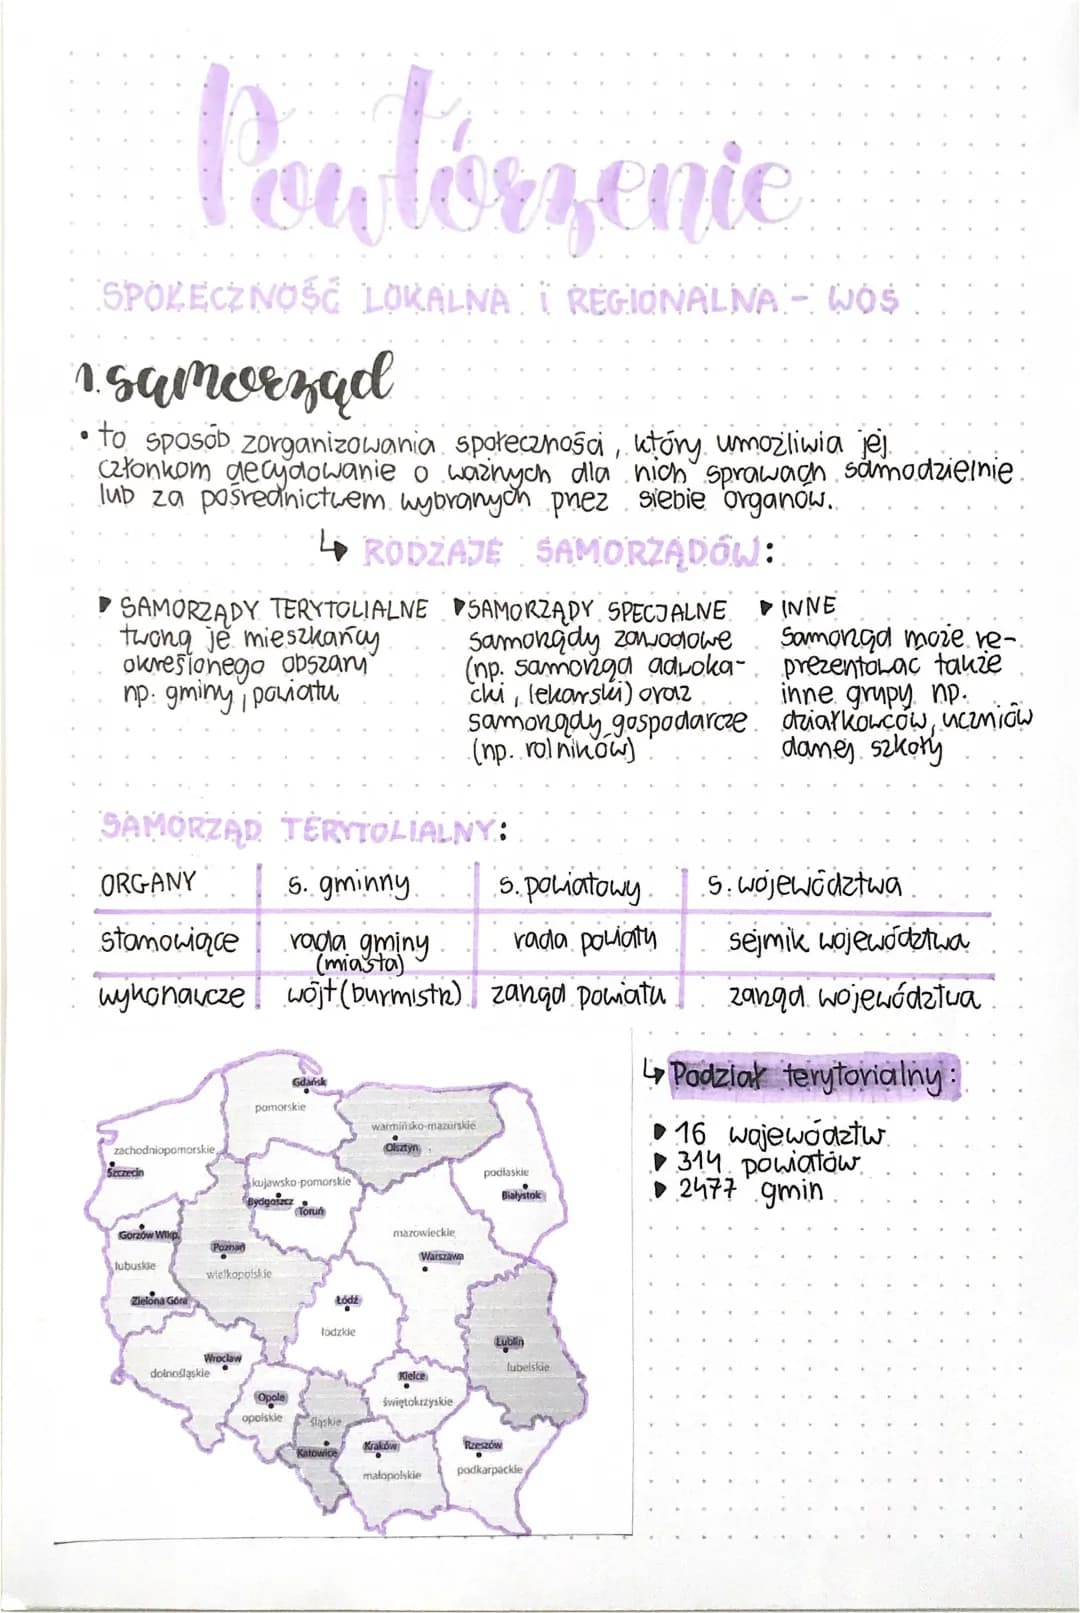 Powtórzenie
SPOŁECZNOŚĆ LOKALNA i REGIONALNA - WOS
1. samorząd
• to sposób zorganizowania społeczności, który umożliwia jej
członkom decydowanie o ważnych dla nich sprawach samodzielnie
lub za pośrednictwem wybranych przez siebie organów.
↳ RODZAJE SAMORZĄDÓW:
▶ SAMORZĄDY TERYTOLIALNE
tworzą je mieszkańcy
określonego obszaru
np. gminy, powiatu
▶ SAMORZĄDY SPECJALNE
samorządy zawodowe
(np. samorząd adwoka-
cki, lekarski) oraz
samorządy gospodarcze
(np. rolników)
▶ INNE
Samorząd może re-
prezentować także
inne grupy np.
działkowców, uczniów
danej szkoły
SAMORZĄD TERYTOLIALNY:
ORGANY s. gminny s. powiatowy s. województwa
stanowiące rada gminy rada powiatu sejmik województwa
(miasta)
wykonawcze wójt (burmistrz) zarząd powiatu zarząd województwa
↳ Podział terytorialny:
▶ 16 województw
▶ 314 powiatów
▶ 2477 gmin
Gdańsk
pomorskie
warmińsko-mazurskie
Olsztyn
zachodniopomorskie
Szczecin
kujawsko-pomorskie
Bydgoszcz
Toruń
podlaskie
Białystok
Gorzów Wlkp.
lubuskie
Zielona Góra
Poznań
wielkopolskie
mazowieckie
Warszawa
Łódź
łódzkie
Lublin
lubelskie
Wrocław
dolnośląskie
Opole
opolskie
śląskie
Katowice
Kielce
świętokrzyskie
Kraków
małopolskie
Rzeszów
podkarpackie